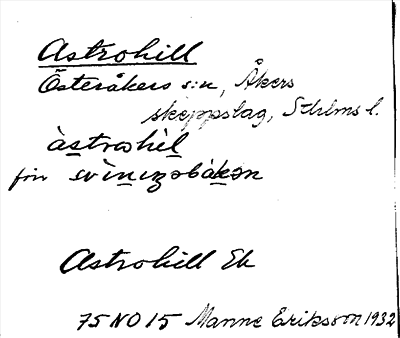 Astrohill
Österåkers s:n, Åkers
skeppslag, Sthlms l.
àstrohìl
för svìnıngobákən
Astrohill Ek
75 NO 15 Manne Eriksson 1932